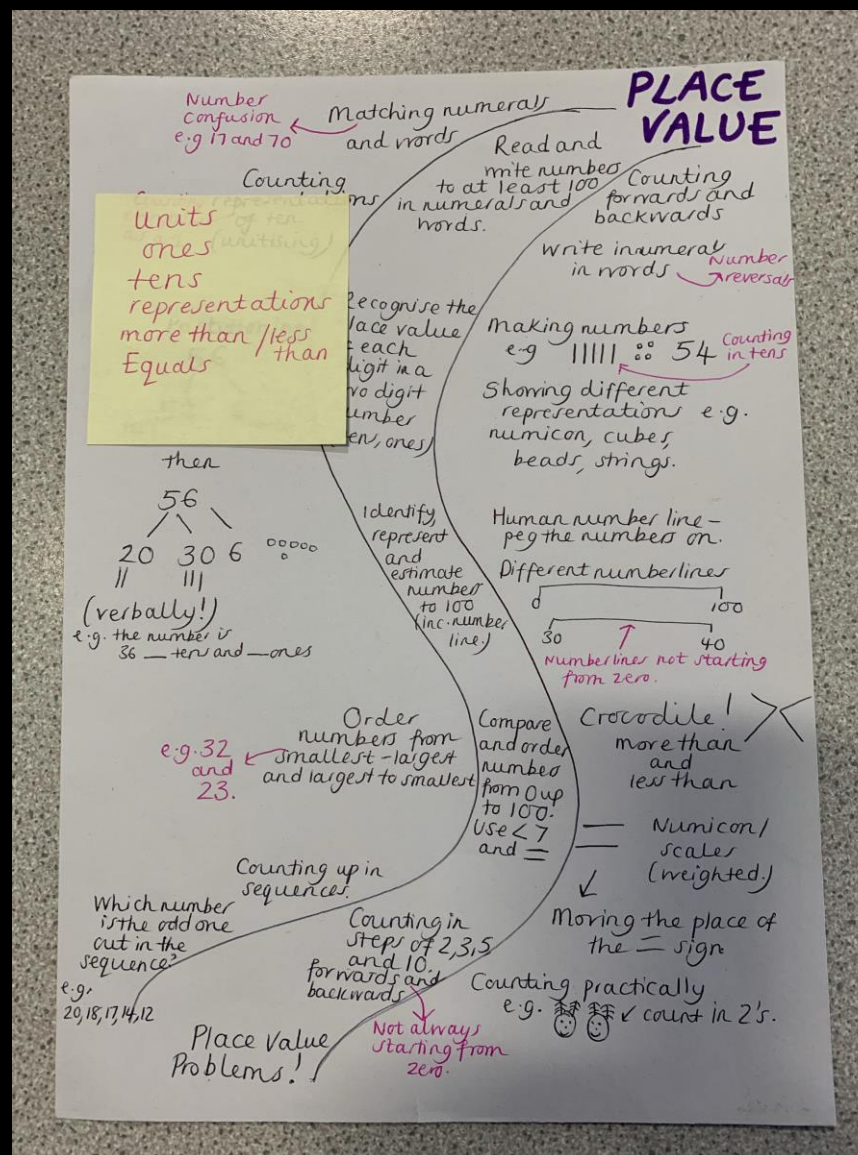 PLACE
VALUE
Number
confusion
e.g 17 and 70
Matching numerals
and words
Read and
write numbers
to at least 100
in numerals and
words.
Counting
forwards and
backwards
Write in numeral
in words
Number
reversals
Counting
units
ones
tens
representations
more than / less
than
Equals
of ten
(unitising)
Recognise the
place value
each
digit in a
digit
number
ones)
Making numbers
e.g 54
Counting
in tens
Showing different
representations e.g.
numicon, cubes,
beads, strings.
then
56
20 30 6
(verbally!)
e.g. the number is
36 __ tens and __ ones
Identify,
represent
and
estimate
numbers
to 100
(inc. number
line.)
Human number line -
peg the numbers on.
Different numberlines
0 100
30 40
Numberlines not starting
from zero.
Order
numbers from
smallest - largest
and largest to smallest
e.g. 32
and
23.
Compare
and order
numbers
from 0 up
to 100.
Use < >
and =
Crocodile! > <
more than
and
less than
= Numicon/
scales
(weighted.)
Moving the place of
the = sign
Counting up in
sequences.
Which number
is the odd one
out in the
sequence?
e.g.
20, 18, 17, 14, 12
Counting in
steps of 2, 3, 5
and 10.
forwards and
backwards
Not always
starting from
zero.
Counting practically
e.g. count in 2's.
Place Value
Problems!